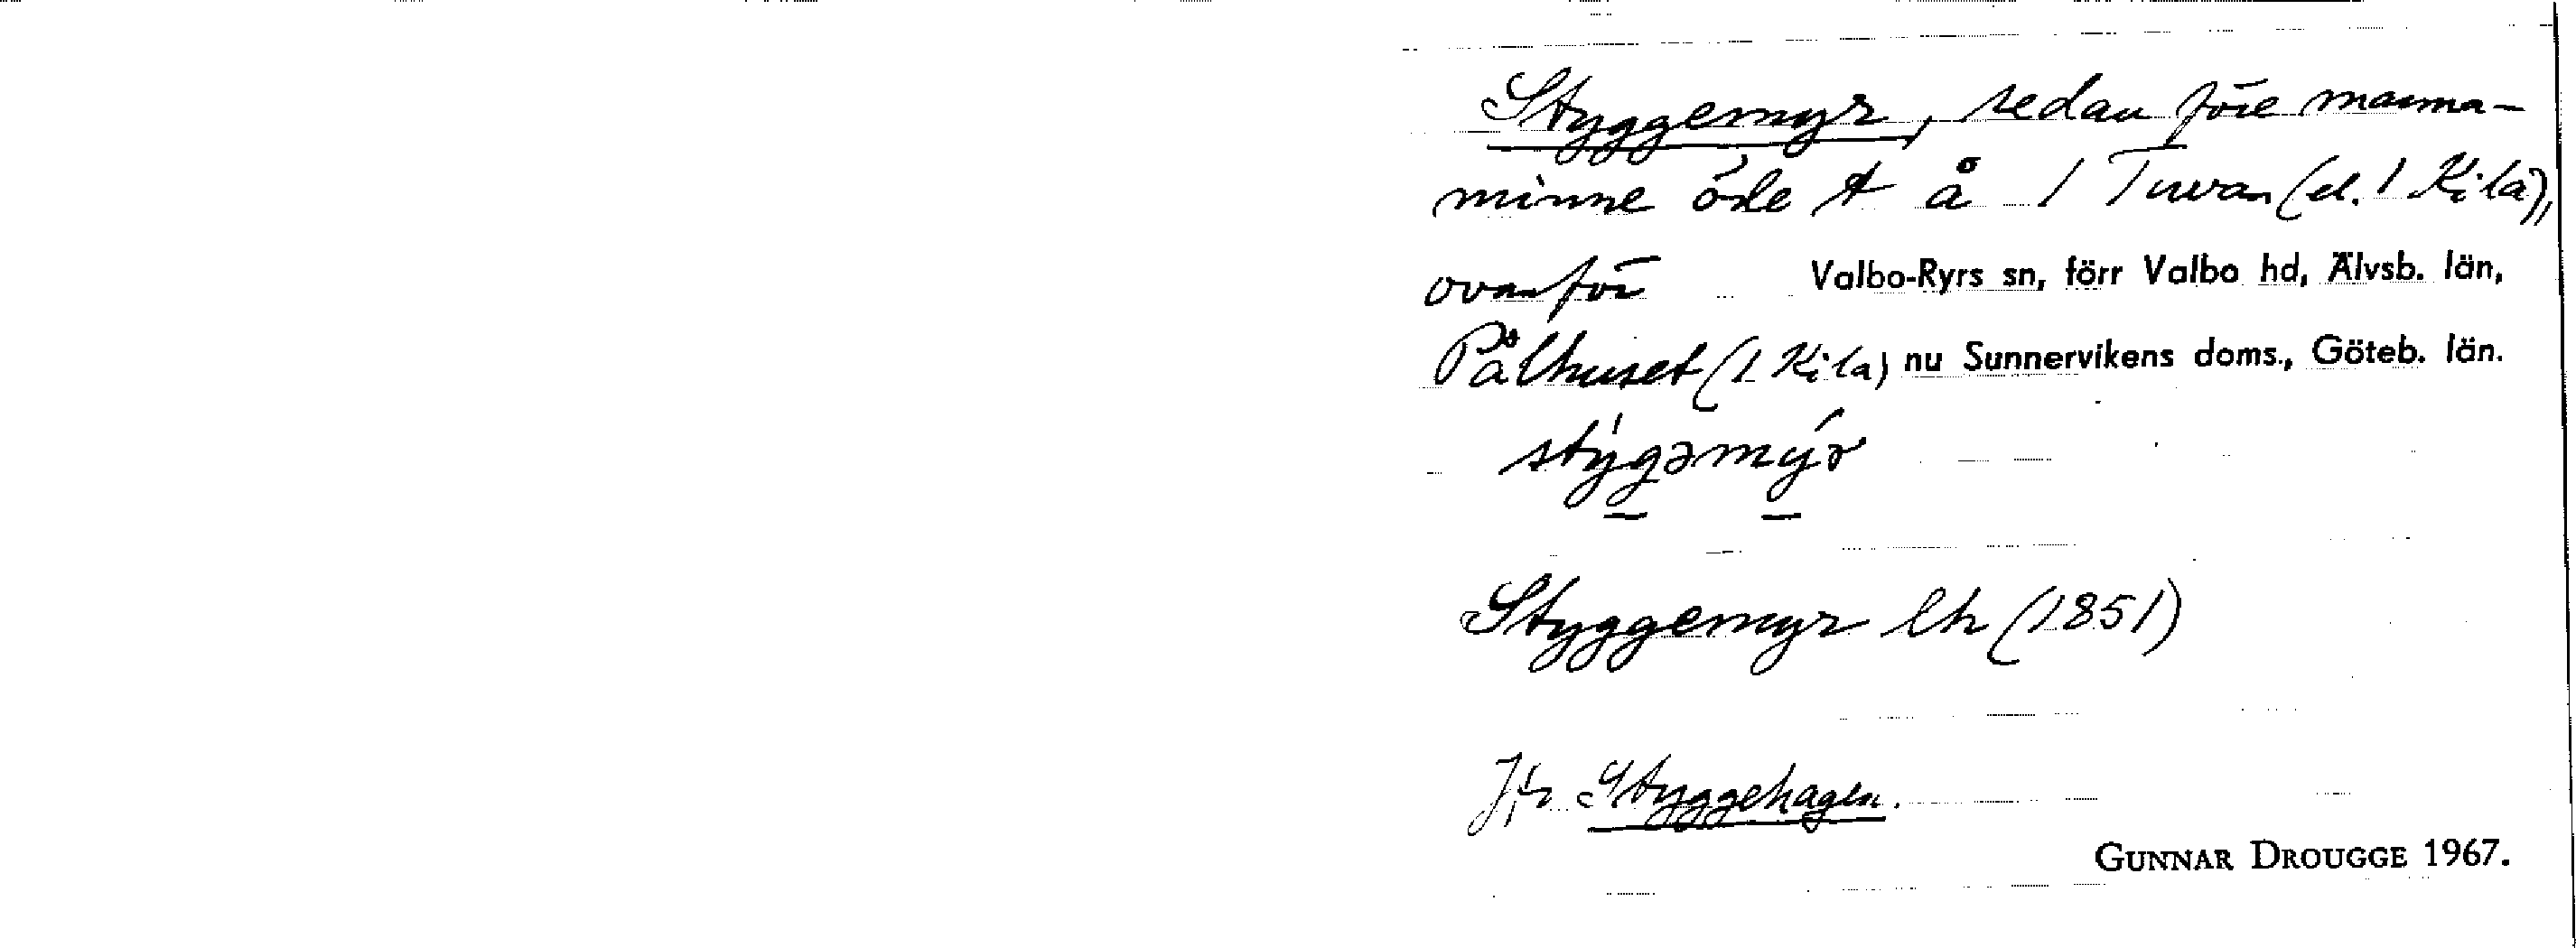 Styggemyr, sedan före manna-
minne öde t å 1 Tuvan (el. 1 Kila),
ovanför Valbo-Ryrs sn, förr Valbo hd, Älvsb. län,
Pålhuset (1 Kila) nu Sunnervikens doms., Göteb. län.
stýgəmýr
Styggemyr lh (1851)
Jfr Styggehagen.
GUNNAR DROUGGE 1967.